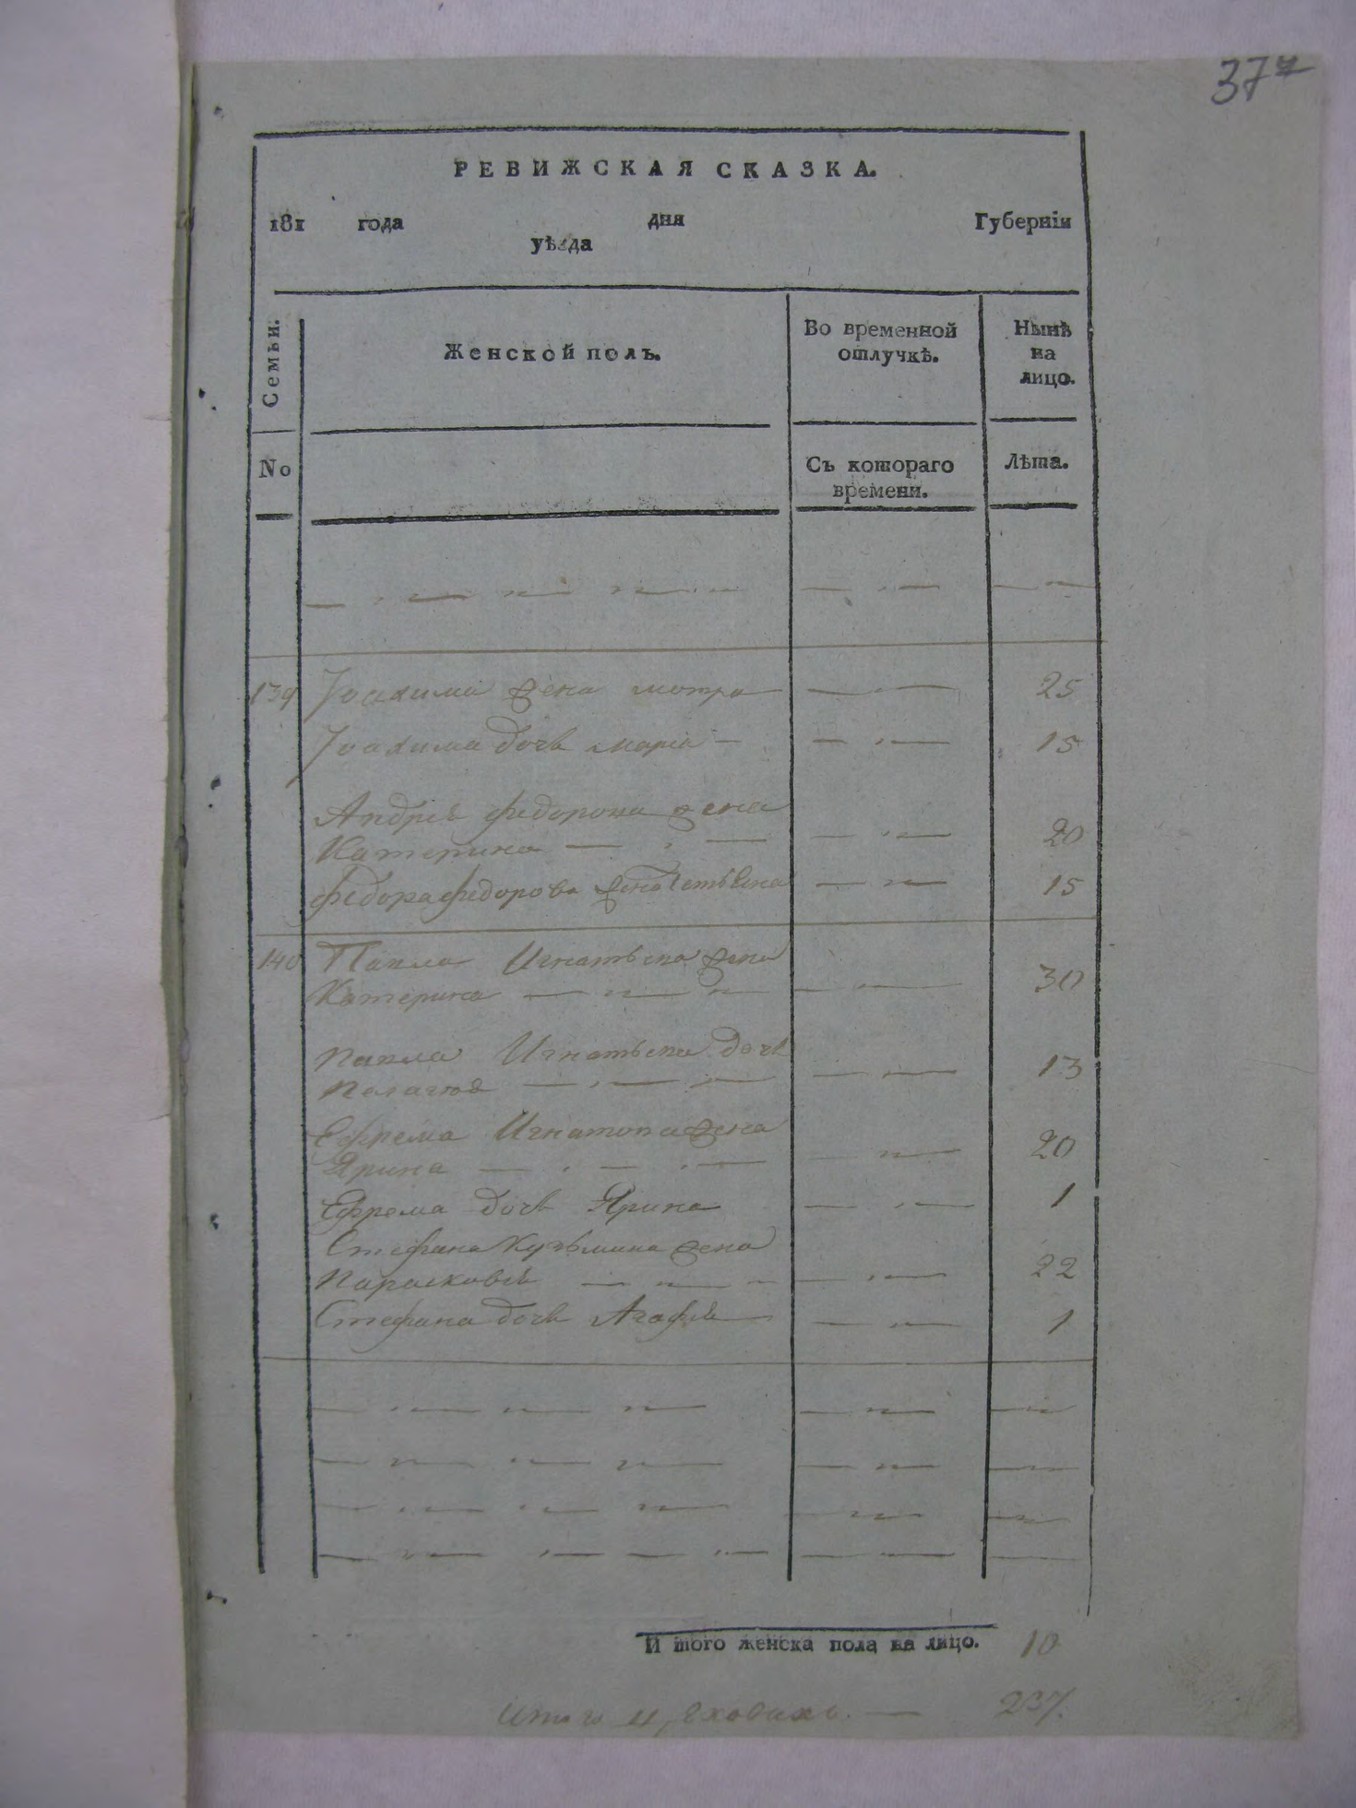 377
РЕВИЖСКАЯ СКАЗКА.
181 года дня Губерніи
уѣзда
Семьи. Женской полъ. Во временной отлучкѣ. Нынѣ на лицо.
No Съ котораго времени. Лѣта.
139 Іоахима жена мотра 25
Іоахима дочь марія 15
Андрія федорова жена
Катерина 20
федора федорова жена 15
140 Павла Игнатьева жена
Катерина 30
павла Игнатьева дочь
Палагія 13
Ефрема Игнатова жена
Ярина 20
Ефрема дочь Ярина 1
Стефана Кузьмина жена
Парасковія 22
Стефана дочь Агафія 1
И того женска пола на лицо. 10
Итого 237.